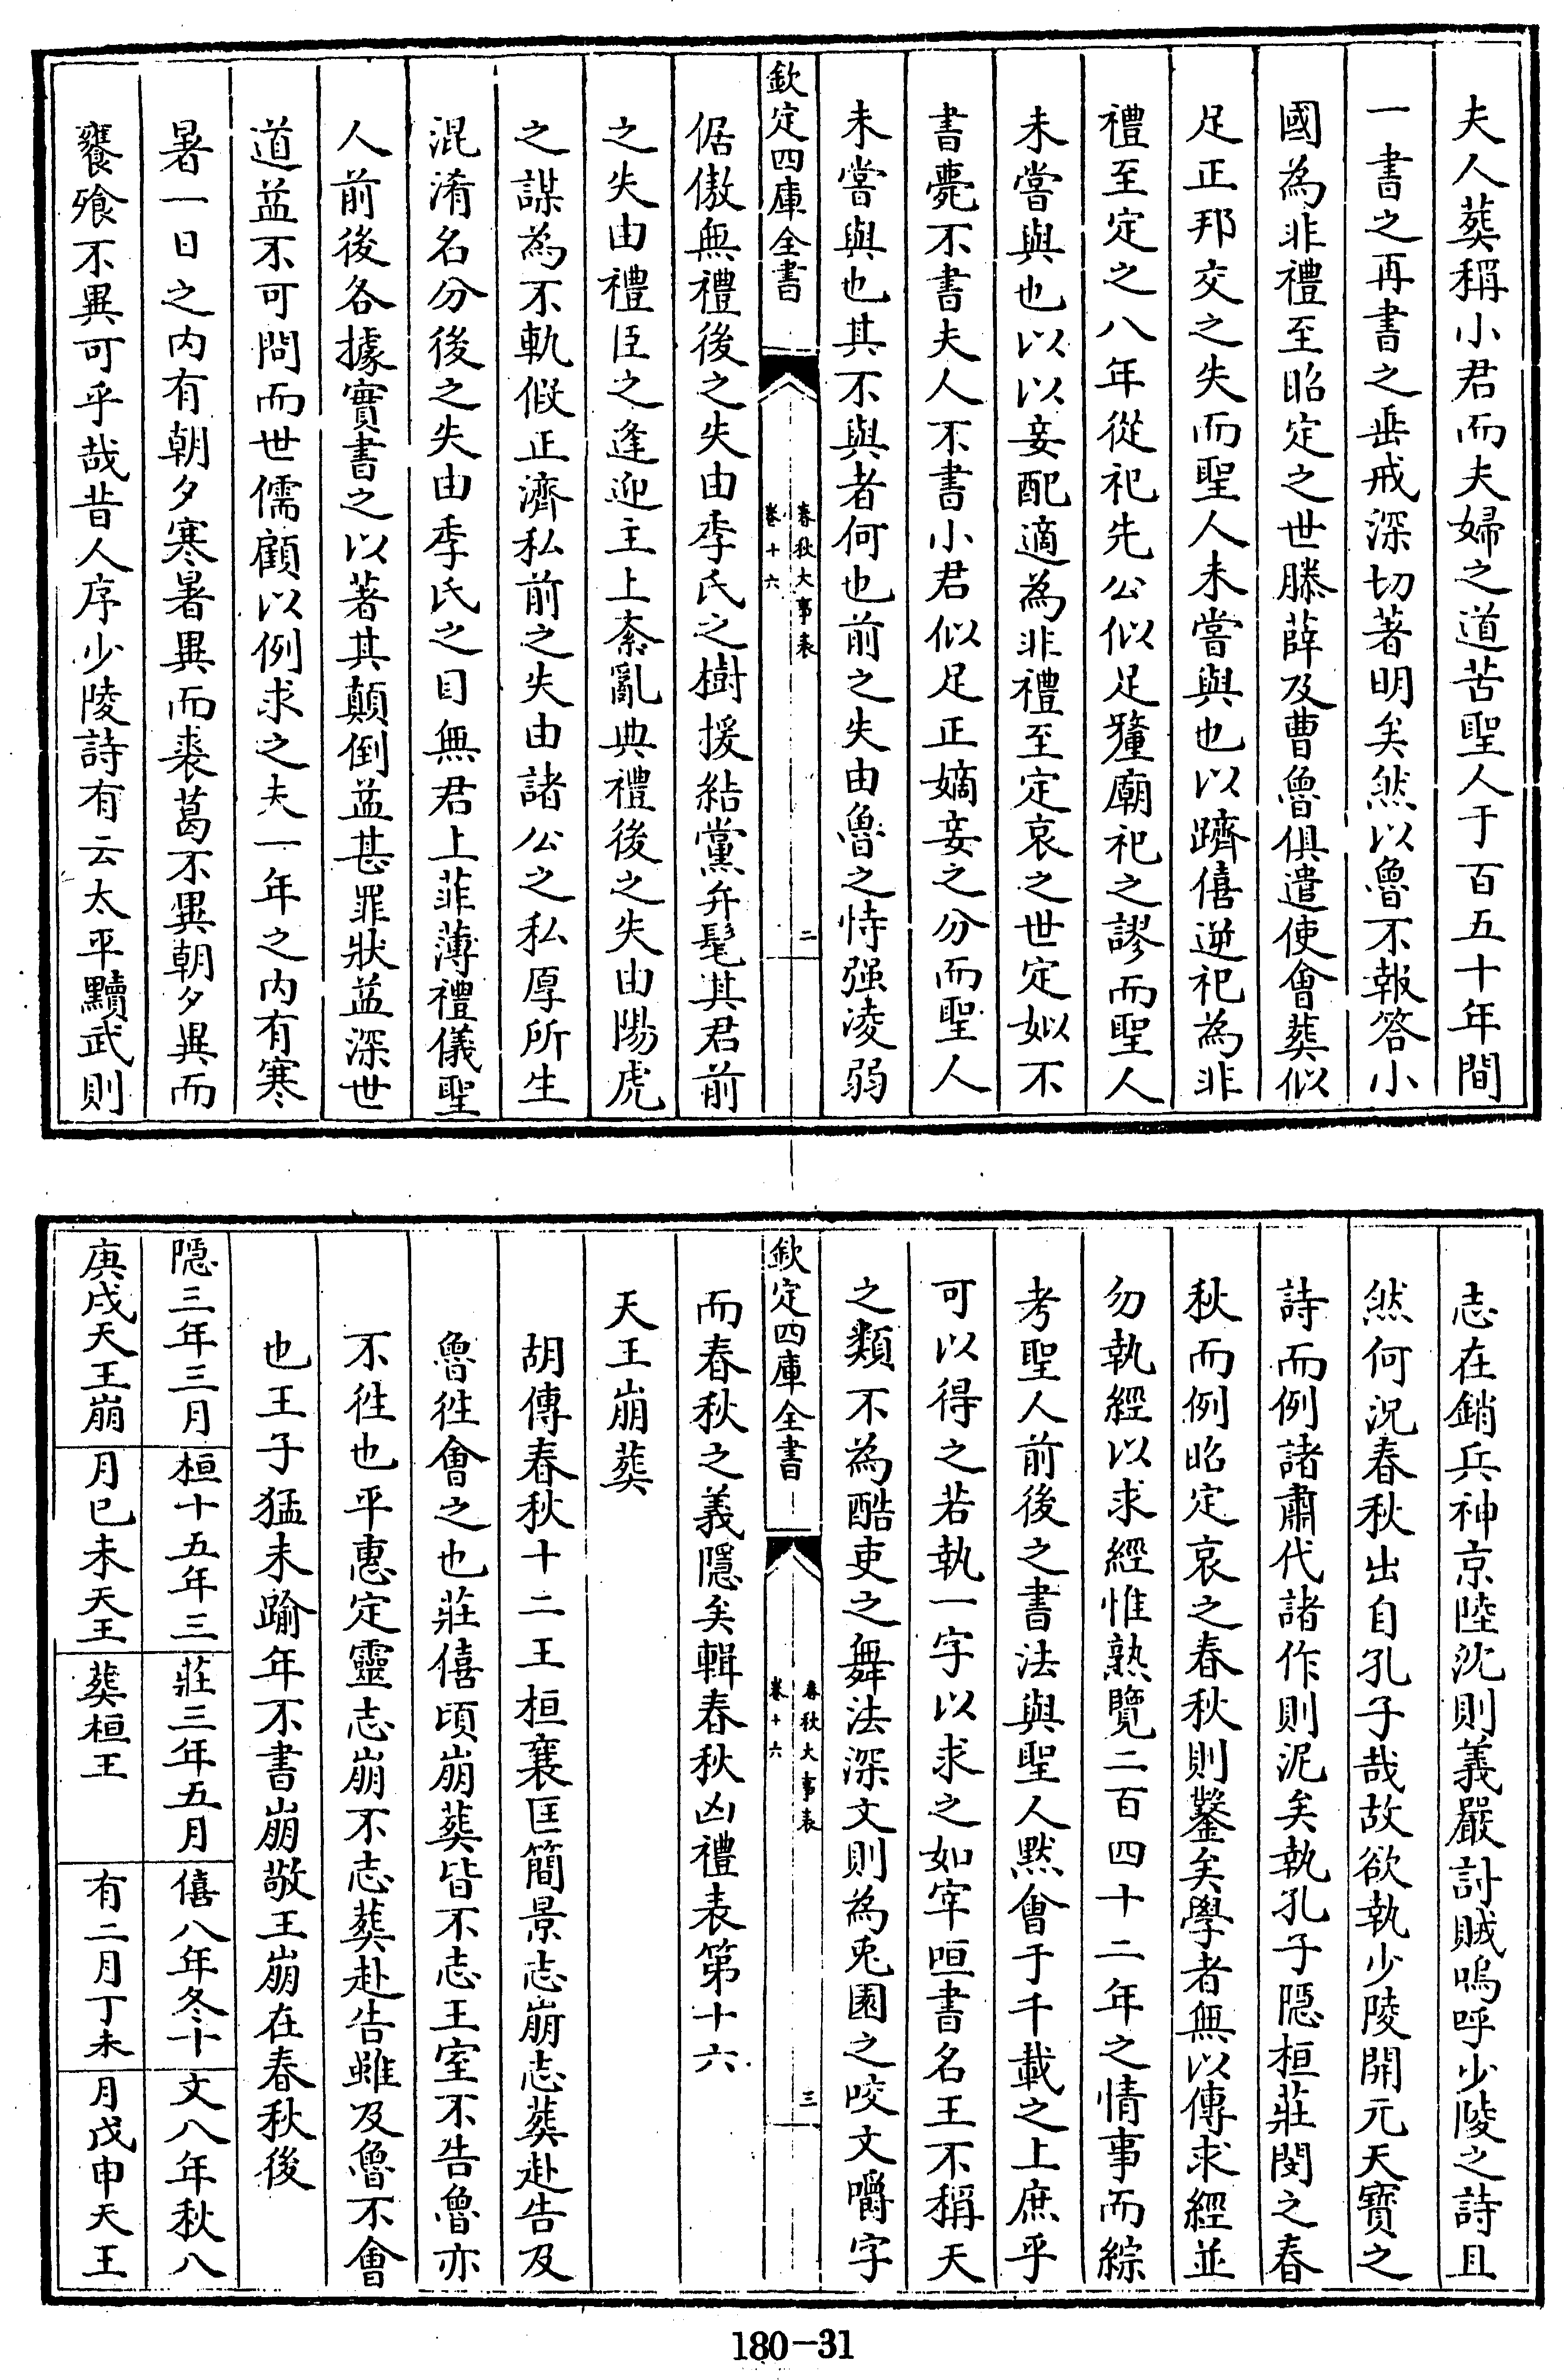 夫人葬稱小君而夫婦之道苦聖人于百五十年間
一書之再書之垂戒深切著明矣然以魯不報答小
國為非禮至昭定之世滕薛及曹魯俱遣使會葬似
足正邦交之失而聖人未嘗與也以躋僖逆祀為非
禮至定之八年從祀先公似足釐廟祀之謬而聖人
未嘗與也以以妾配適為非禮至定哀之世定姒不
書薨不書夫人不書小君似足正嫡妾之分而聖人
未嘗與也其不與者何也前之失由魯之恃强凌弱
欽定四庫全書
春秋大事表
卷十六
二
倨傲無禮後之失由季氏之樹援結黨弁髦其君前
之失由禮臣之逢迎主上紊亂典禮後之失由陽虎
之謀為不軌假正濟私前之失由諸公之私厚所生
混淆名分後之失由季氏之目無君上菲薄禮儀聖
人前後各據實書之以著其顛倒益甚罪狀益深世
道益不可問而世儒顧以例求之夫一年之內有寒
暑一日之內有朝夕寒暑異而裘葛不異朝夕異而
饔飧不異可乎哉昔人序少陵詩有云太平黷武則
志在銷兵神京陸沈則義嚴討賊嗚呼少陵之詩且
然何況春秋出自孔子哉故欲執少陵開元天寶之
詩而例諸肅代諸作則泥矣執孔子隱桓莊閔之春
秋而例昭定哀之春秋則鑿矣學者無以傳求經並
勿執經以求經惟熟覽二百四十二年之情事而綜
考聖人前後之書法與聖人默會于千載之上庶乎
可以得之若執一字以求之如宰咺書名王不稱天
之類不為酷吏之舞法深文則為兎園之咬文嚼字
欽定四庫全書
春秋大事表
卷十六
三
而春秋之義隱矣輯春秋凶禮表第十六
天王崩葬
胡傳春秋十二王桓襄匡簡景志崩志葬赴告及
魯徃會之也莊僖頃崩葬皆不志王室不告魯亦
不徃也平惠定靈志崩不志葬赴告雖及魯不會
也王子猛未踰年不書崩敬王崩在春秋後
隱三年三月
庚戌天王崩
桓十五年三
月已未天王
莊三年五月
葬桓王
僖八年冬十
有二月丁未
文八年秋八
月戊申天王
180-31